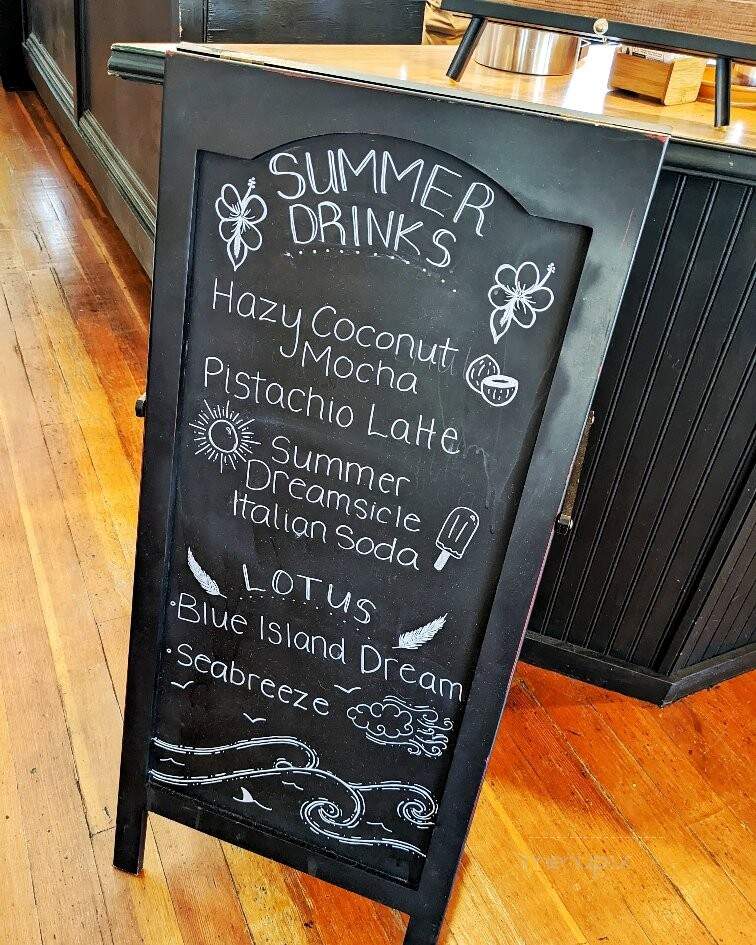 SUMMER
DRINKS
Hazy Coconut
Mocha
Pistachio Latte
Summer
Dreamsicle
Italian Soda
LOTUS
•Blue Island Dream
•Seabreeze